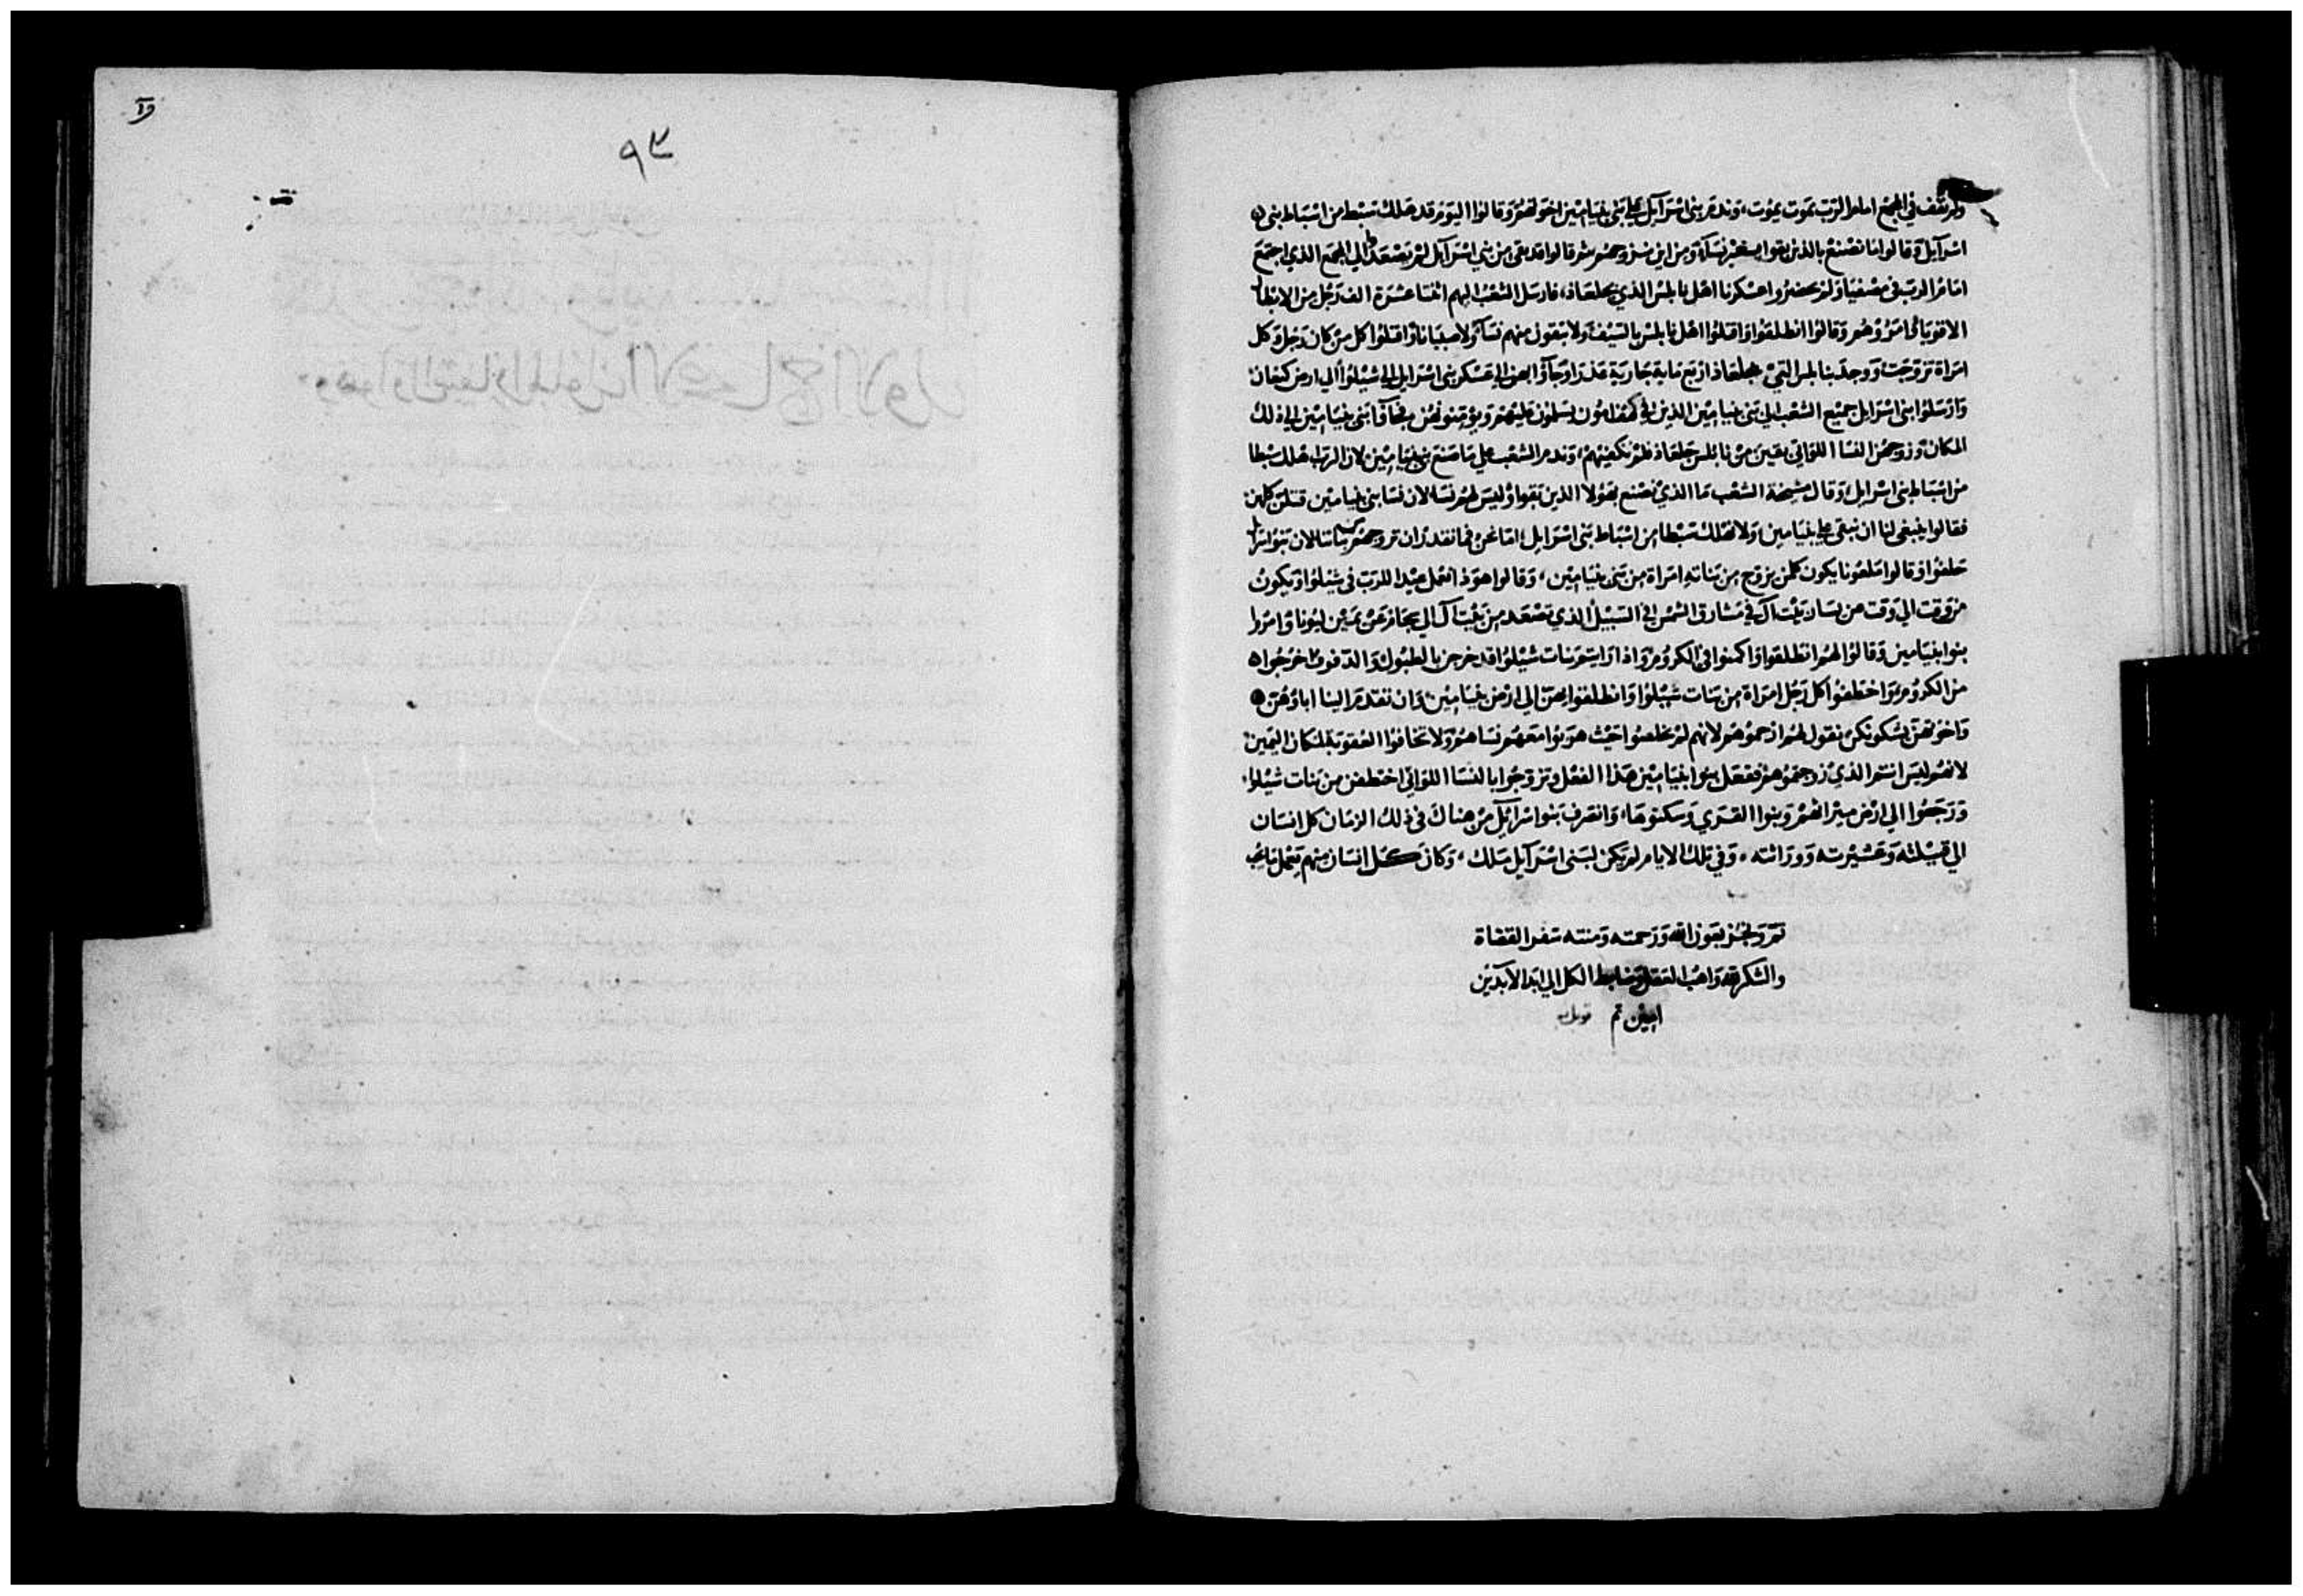 ولم يقف في المجمع امام الرب يموت يموت، وندم بني اسرآيل علي بني بنيامين اخوتهم وقالوا اليوم قد هلك سبط من اسباط بني
اسرآيل وقالوا ما نصنع بالذين بقوا بغير نسآء ومن اين نزوجهم ثم قالوا قد بقي من بني اسرآيل لم يصعد الي المجمع الذي اجتمع
امام الرب في مصفيا ولم يحضروا عسكرنا اهل نابلس الذي بجلعاد، فارسل الشعب اليهم اثنا عشرة الف رجل من الابطال
الاقويا وامروهم وقالوا انطلقوا واقتلوا اهل نابلس بالسيف ولا تبقون منهم نسآء ولا صبيانا واقتلوا كل من كان رجل وكل
امراة تزوجت ووجد بنابلس التي بجلعاد اربع ماية جارية عذرا وجآوا بهن الي عسكر بني اسرايل الي شيلوا الي ارض كنعان
وارسلوا بني اسرايل جميع الشعب الي بني بنيامين الذين في كهف رمون يسلمون عليهم ويومنونهم فجآوا بني بنيامين الي ذلك
المكان وزوجهن النسا اللواتي بقين من نابلس جلعاد فلم تكفيهم، وندم الشعب علي ما صنع بني بنيامين لان الرب اهلك سبطا
من اسباط بني اسرايل، وقال مشيخة الشعب ما الذي نصنع بهولا الذين بقوا وليس لهم نسا لان نسا بني بنيامين قتلن كلهن
فقالوا ينبغي لنا ان نبقي علي بنيامين ولا نهلك سبطا من اسباط بني اسرايل، اما نحن فما نقدر ان نزوجهم بناتنا لان بنوا اسرايل
حلفوا وقالوا ملعونا يكون كلمن يزوج من بناته امراة من بني بنيامين، وقالوا هوذا نعمل عيدا للرب في شيلوا ويكون
من وقت الي وقت عن يسار بيت آل في مشارق الشمس في السبيل الذي تصعد من بيت آل الي نجام عن يمين لبونا وامروا
بنوا بنيامين وقالوا لهم انطلقوا واكمنوا في الكروم، واذا رايتم بنات شيلوا قد خرجن بالطبول والدفوف اخرجوا
من الكروم واختطفوا كل رجل امراة من بنات شيلوا وانطلقوا بهن الي ارض بنيامين، وان تقدم الينا اباوهن
واخوتهن يشكونكم نقول لهم ارحموهم لانهم لم يخلصوا حيث هربوا معهم نساهم ولا تخافوا العقوبة لمكان اليمين
لانكم ليس انتم الذي زوجتموهم ففعل بنوا بنيامين هذا الفعل وتزوجوا بالنسا اللواتي اختطفن من بنات شيلوا
ورجعوا الي ارض ميراثهم وبنوا القري وسكنوها، وانصرف بنوا اسرآيل من هناك في ذلك الزمان كل انسان
الي قبيلته وعشيرته ووراثته، وفي تلك الايام لم يكن لبني اسرآيل ملك، وكان كل انسان منهم يعمل ما يحب
تم ونجز بعون الله ورحمته ومنته سفر القضاة
والشكر لله واهب العقل وضابط الكل الي ابد الآبدين
امين تم قوبل
٩٣